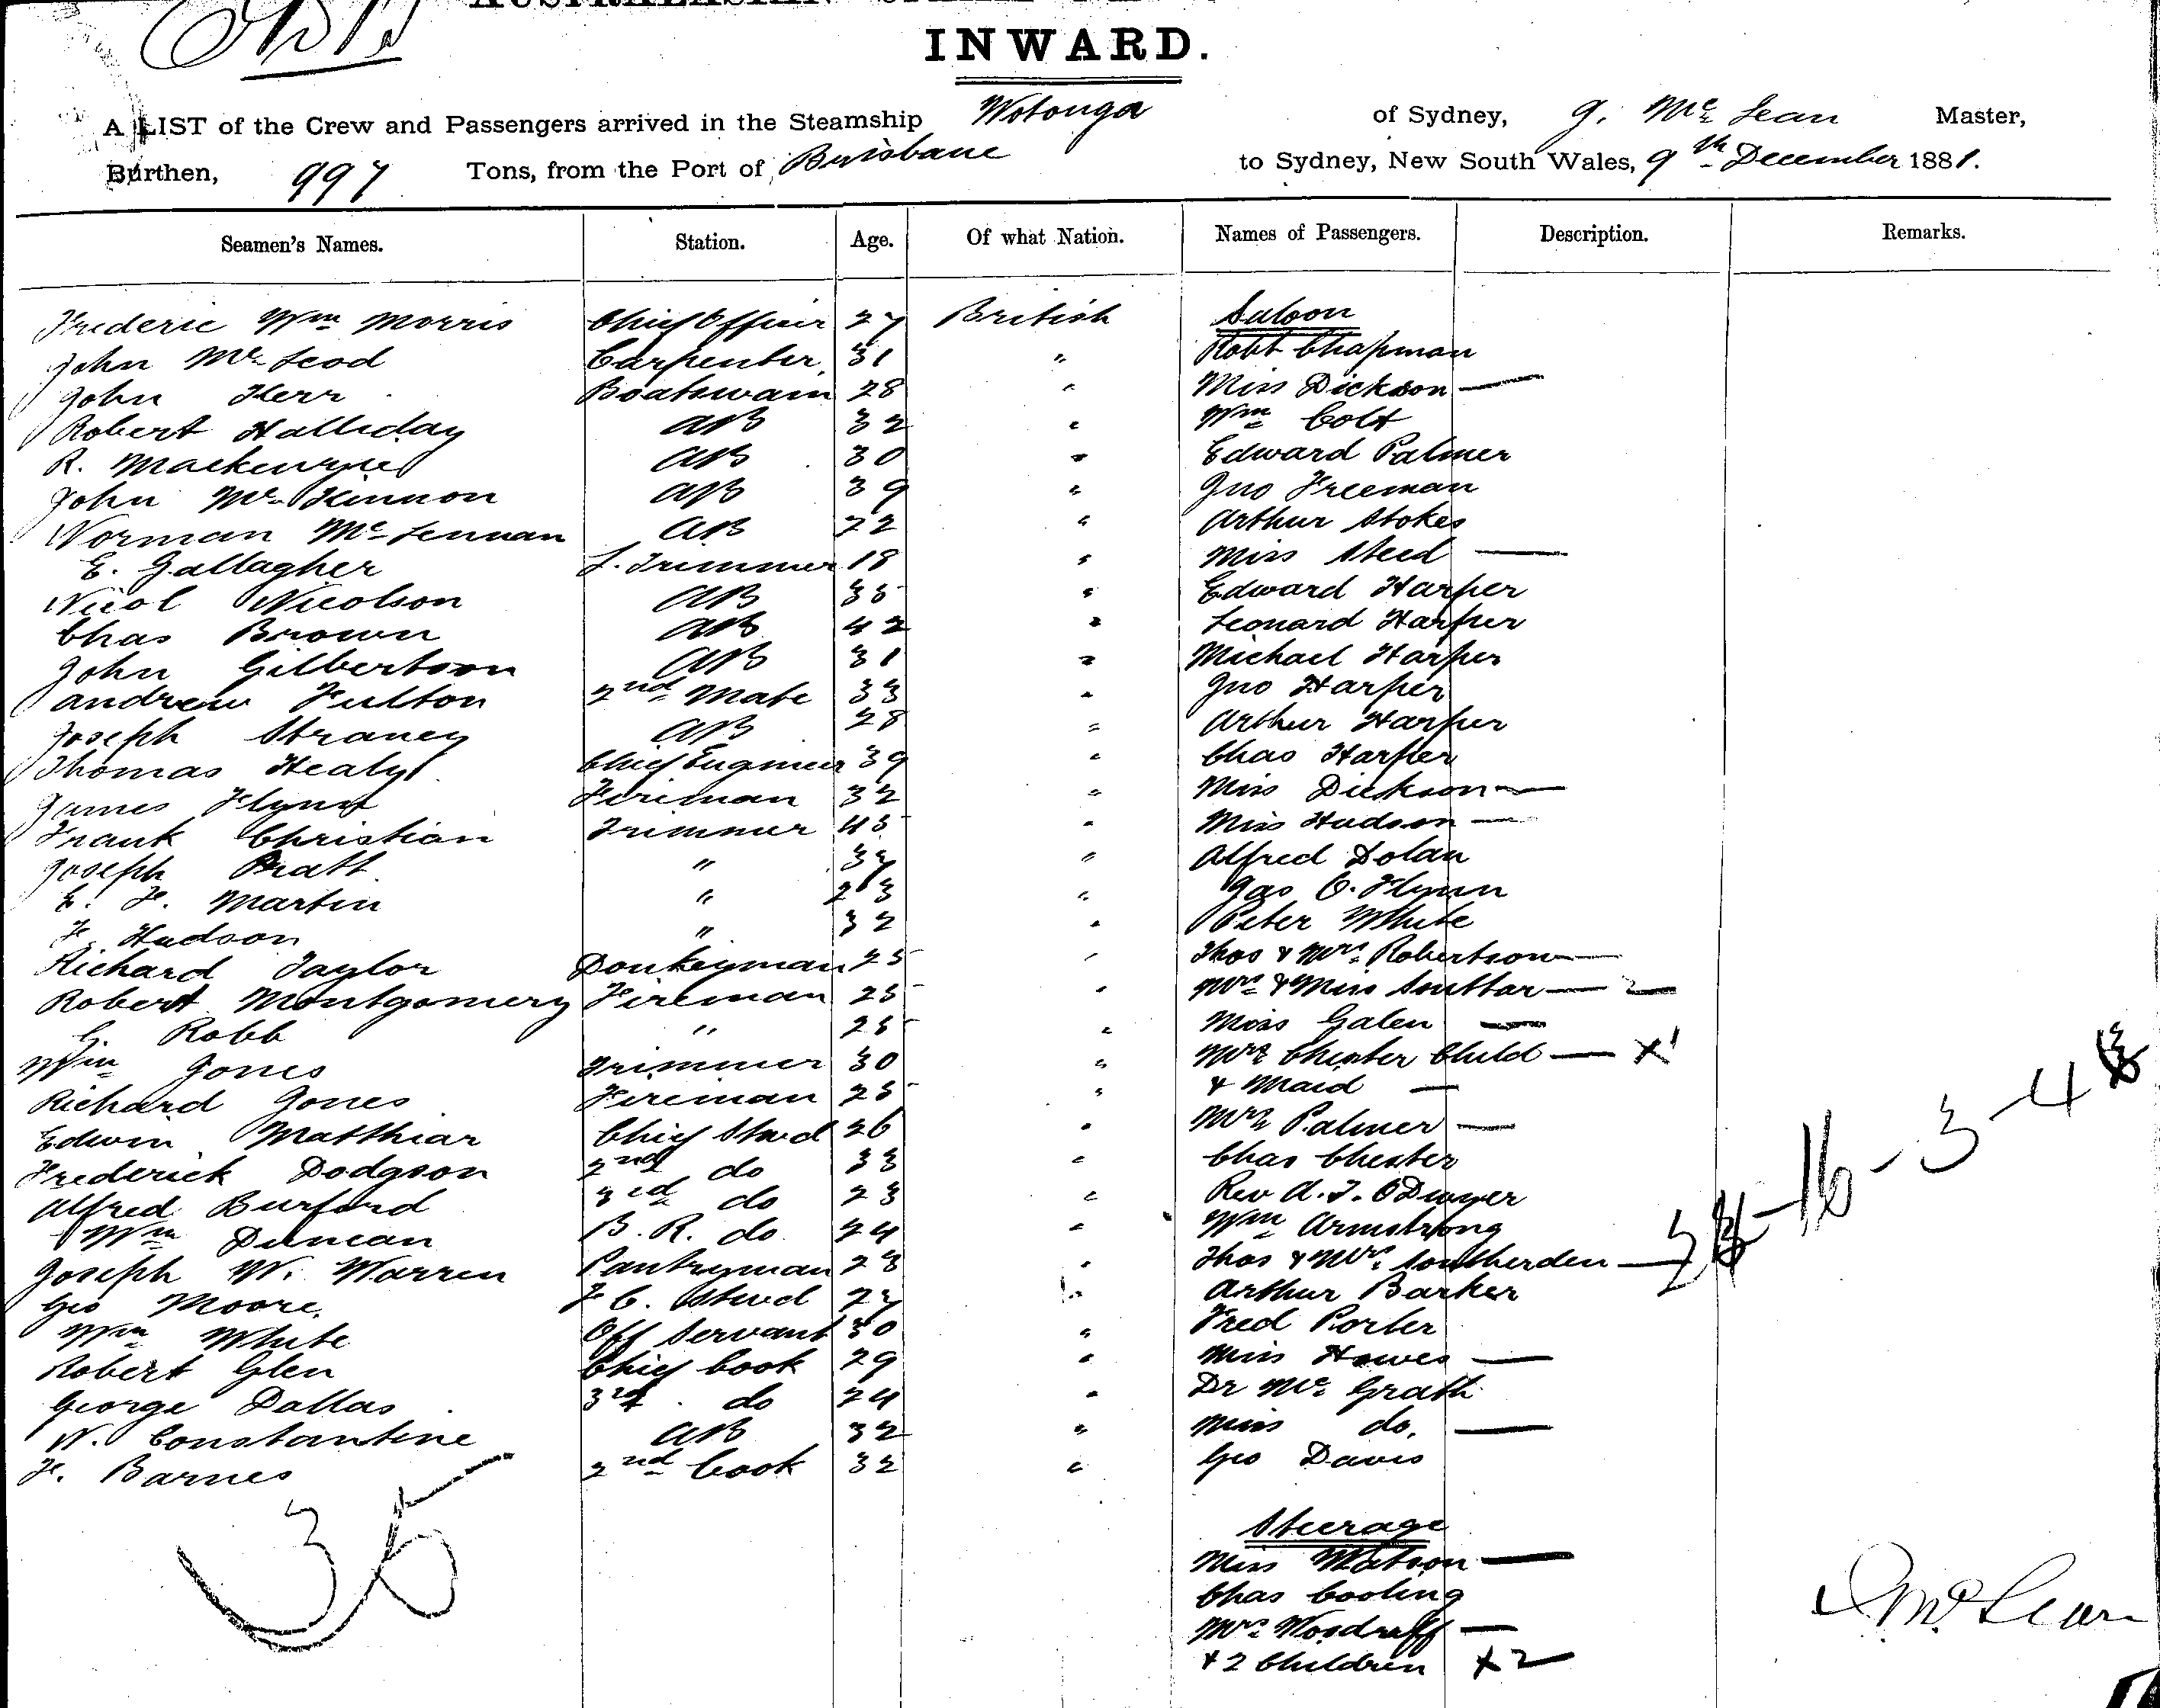 INWARD.
A LIST of the Crew and Passengers arrived in the Steamship Wotonga of Sydney, G. Mc Lean Master,
Burthen, 997 Tons, from the Port of Brisbane to Sydney, New South Wales, 9th December 1881.
Seamen's Names. Station. Age. Of what Nation. Names of Passengers. Description. Remarks.
Frederic Wm Morris Chief Officer 27 British Saloon
John Mc Leod Carpenter, 31 " Robt Chapman
John Kerr Boatswain 28 " Miss Dickson —
Robert Halliday AB 32 " Wm Colt
R. Mackenzie AB 30 " Edward Palmer
John Mc Kinnon AB 39 " Jno Freeman
Norman Mc Lennan AB 22 " Arthur Stokes
E. Gallagher L. Trimmer 18 " Miss Steed —
Nicol Nicolson AB 35 " Edward Harper
Chas Brown AB 42 " Leonard Harper
John Gilbertson AB 31 " Michael Harper
Andrew Fulton 2nd Mate 33 " Jno Harper
Joseph Straney AB 28 " Arthur Harper
Thomas Healy Chief Engineer 39 " Chas Harper
James Flynn Fireman 32 " Miss Dickson —
Frank Christian Trimmer 45 " Miss Hudson —
Joseph Pratt " 37 " Alfred Dolan
E. F. Martin " 23 " Jas O. Flynn
F. Hudson " 32 " Peter White
Richard Taylor Donkeyman 25 " Thos & Mrs. Robertson —
Robert Montgomery Fireman 25 " Mrs & Miss Souttar — 2
G. Robb " 25 " Miss Galen —
Wm Jones Trimmer 30 " Mrs Chester Child — X1
Richard Jones Fireman 25 " & Maid —
Edwin Matthiar Chief Stwd 26 " Mrs Palmer —
Frederick Dodgson 2nd do 33 " Chas Chester
Alfred Burford 3rd do 23 " Rev A. J. O Dwyer
Wm Duncan B. R. do 24 " Wm Armstrong
Joseph W. Warren Pantryman 23 " Thos & Mrs. Southerden —
Geo Moore. F C. Stwd 27 " Arthur Barker
Wm White Off Servant 30 " Fred Porter
Robert Glen Chief Cook 29 " Miss Howes —
George Dallas 3rd do 24 " Dr Mc Grath
W. Constantine AB 32 " Miss do. —
F. Barnes 2nd Cook 32 " Geo Davis
35
Steerage
Miss Watson —
Chas Cooling
Mrs Woodruff —
& 2 Children X2
Mc Lean